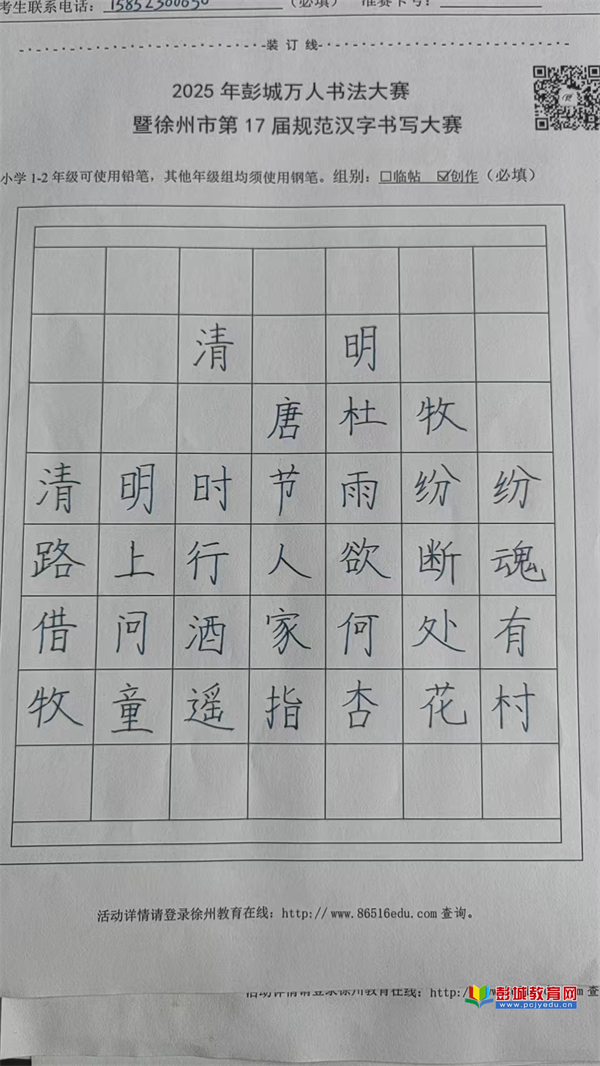 考生联系电话：15852300650 （必填） 准赛卡号：
装 订 线
2025 年彭城万人书法大赛
暨徐州市第 17 届规范汉字书写大赛
小学 1-2 年级可使用铅笔，其他年级组均须使用钢笔。组别：□临帖 ☑创作（必填）
清 明
唐 杜 牧
清 明 时 节 雨 纷 纷
路 上 行 人 欲 断 魂
借 问 酒 家 何 处 有
牧 童 遥 指 杏 花 村
活动详情请登录徐州教育在线：http://www.86516edu.com 查询。
活动详情请登录徐州教育在线：http://
彭城教育网
www.pcjyedu.com